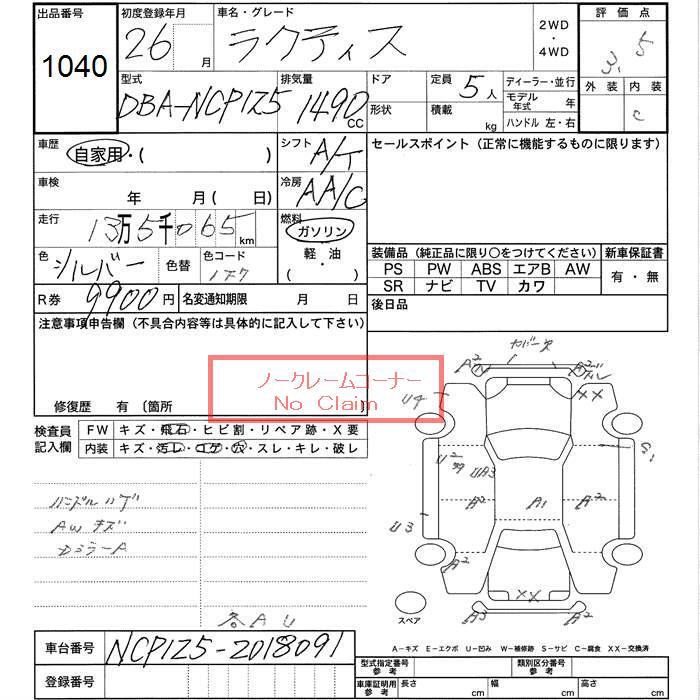 出品番号 初度登録年月 車名・グレード 2WD・4WD 評価点
1040 26 月 ラクティス 3.5
型式 排気量 ドア 定員 5人 ディーラー・並行 外装 内装
DBA-NCP125 1490 CC 形状 積載 kg モデル年式 年 C
ハンドル 左・右
車歴 自家用・( ) シフト A/T セールスポイント(正常に機能するものに限ります)
車検 年 月( 日) 冷房 AA/C
走行 13万5千065 km 燃料 ガソリン
色 シルバー 色替 色コード 1F7 軽油 ( )
装備品(純正品に限り○をつけてください) 新車保証書
PS PW ABS エアB AW 有・無
SR ナビ TV カワ
R券 9900円 名変通知期限 月 日 後日品
注意事項申告欄(不具合内容等は具体的に記入して下さい)
ノークレームコーナー
No Claim
修復歴 有〔箇所 〕
検査員記入欄 FW キズ・飛石・ヒビ割・リペア跡・X要
内装 キズ・汚レ・コゲ・穴・スレ・キレ・破レ
ハンドルハゲ
AWキズ
DミラーA
各AU
カバー欠
A2 A2
XX
U4
G1
U2 UA3
A2 A1 A2
U3
A2
XX
A3 A2
スペア
A-キズ E-エクボ U-凹み W-補修跡 S-サビ C-腐食 XX-交換済
車台番号 NCP125-2018091
登録番号
型式指定番号 参考 類別区分番号 参考
車庫証明用 参考 長さ cm 幅 cm 高さ cm